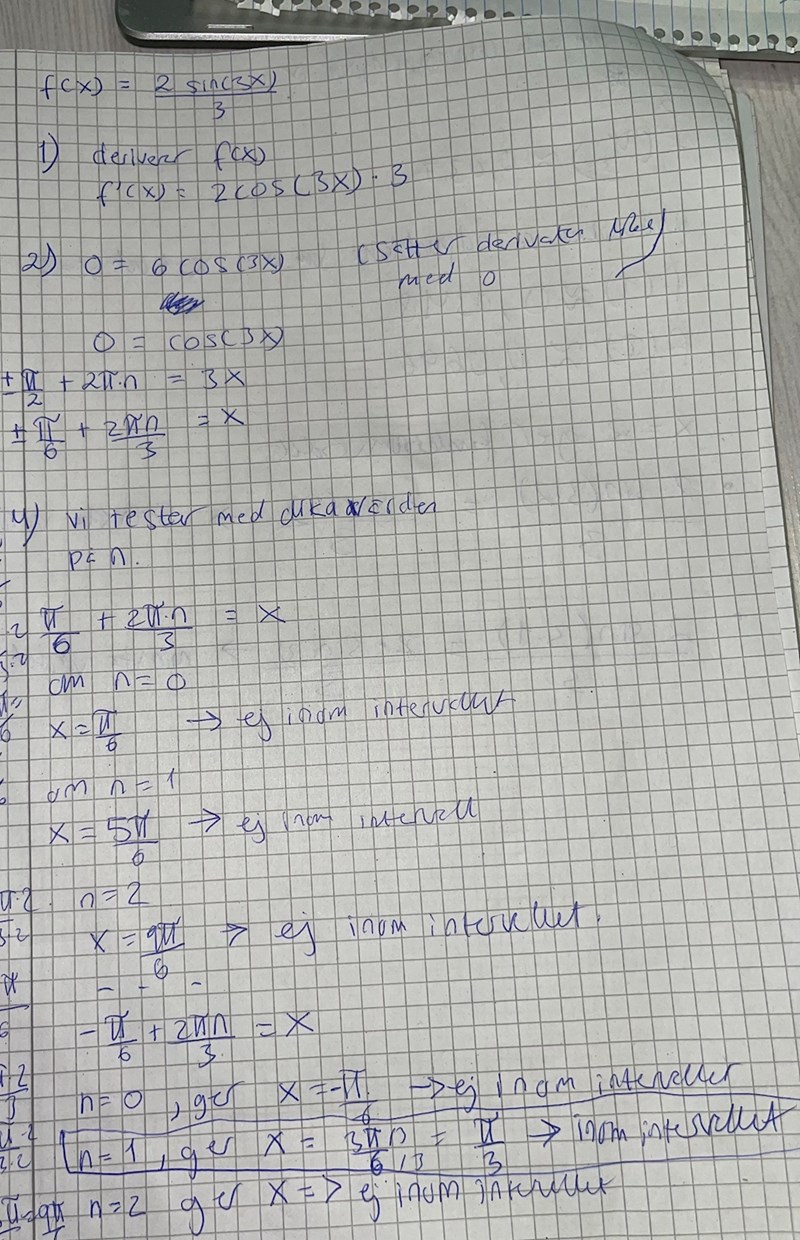 f(x) = 2 sin(3x) / 3
1) deriverar f(x)
f'(x) = 2cos(3x) · 3
2) 0 = 6 cos(3x) (Sätter derivatan lika
med 0
0 = cos(3x)
± π/2 + 2π·n = 3x
± π/6 + 2πn/3 = x
4) vi testar med olika värden
på n.
π/6 + 2π·n/3 = x
om n = 0
x = π/6 → ej inom intervallet
om n = 1
x = 5π/6 → ej inom intervall
n = 2
x = 9π/6 → ej inom intervallet.
- - -
-π/6 + 2πn/3 = x
n = 0, ger x = -π/6 → ej inom intervallet
n = 1, ger x = 3πn/6 = π/3 → inom intervallet
n = 2 ger x => ej inom intervallet